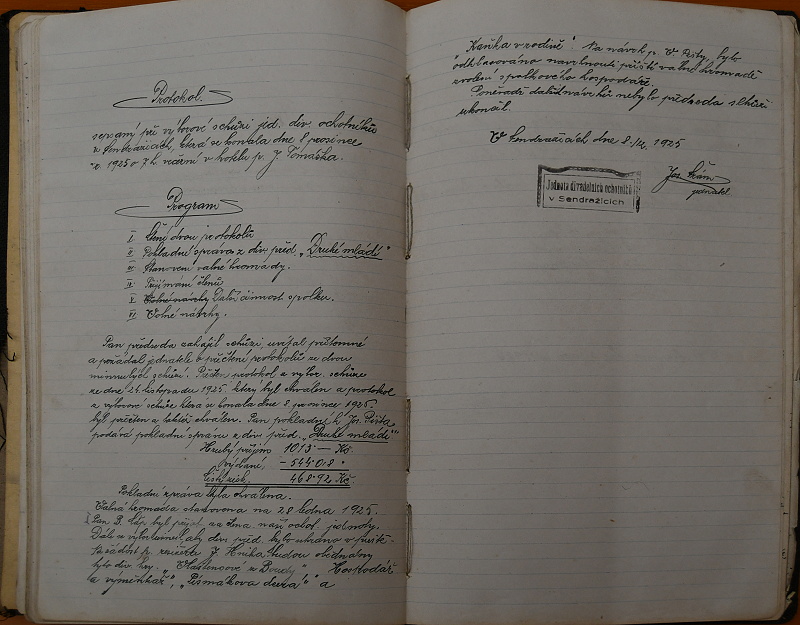 Protokol.
sepsaný při výborové schůzi jed. div. ochotníků
v Sendražicích, která se konala dne 8 prosince
r. 1925 o 7 h. večerní v hotelu p. J. Tomáška.
Program
I Čtení dvou protokolů
II Pokladní zpráva z div. před. „Druhé mládí“
III Stanovení valné hromady.
IV Přijímání členů
V Volné návrhy Další činnost spolku.
VI Volné návrhy.
Pan předseda zahájil schůzi, uvítal přítomné
a požádal jednatele o přečtení protokolů ze dvou
minulých schůzí. Přečten protokol z výbor. schůze
ze dne 24. listopadu 1925, který byl chválen a protokol
z výborové schůze která se konala dne 8. prosince 1925
byl přečten a taktéž chválen. Pan pokladní Jos. Pešta
podává pokladní zprávu z div. před. „Druhé mládí“
Hrubý příjem 1013 — Kč.
Vydání, — 544·08 "
Čistý zisk, 468·92 Kč.
Pokladní zpráva byla chválena.
Valná hromada stanovena na 28 ledna 1925.
Pan B. byl přijat za člena naší ochot. jednoty.
Dále div. před. bylo
žádost p. režiséra J. budou objednány
tyto div. hry. „ z Boudy“ Hospodář
a výměnkář“, „Písmákova dcera“ a
„Kaňka v rodině“. Na návrh p. V. Pešty, bylo
odhlasováno navrhnouti příští valné hromadě
zvolení spolkového hospodáře.
Poněvadž dalších návrhů nebylo předseda schůzi
ukončil.
V Sendražicích dne 8./12. 1925
Jednota divadelních ochotníků
v Sendražicích
Jos.
jednatel